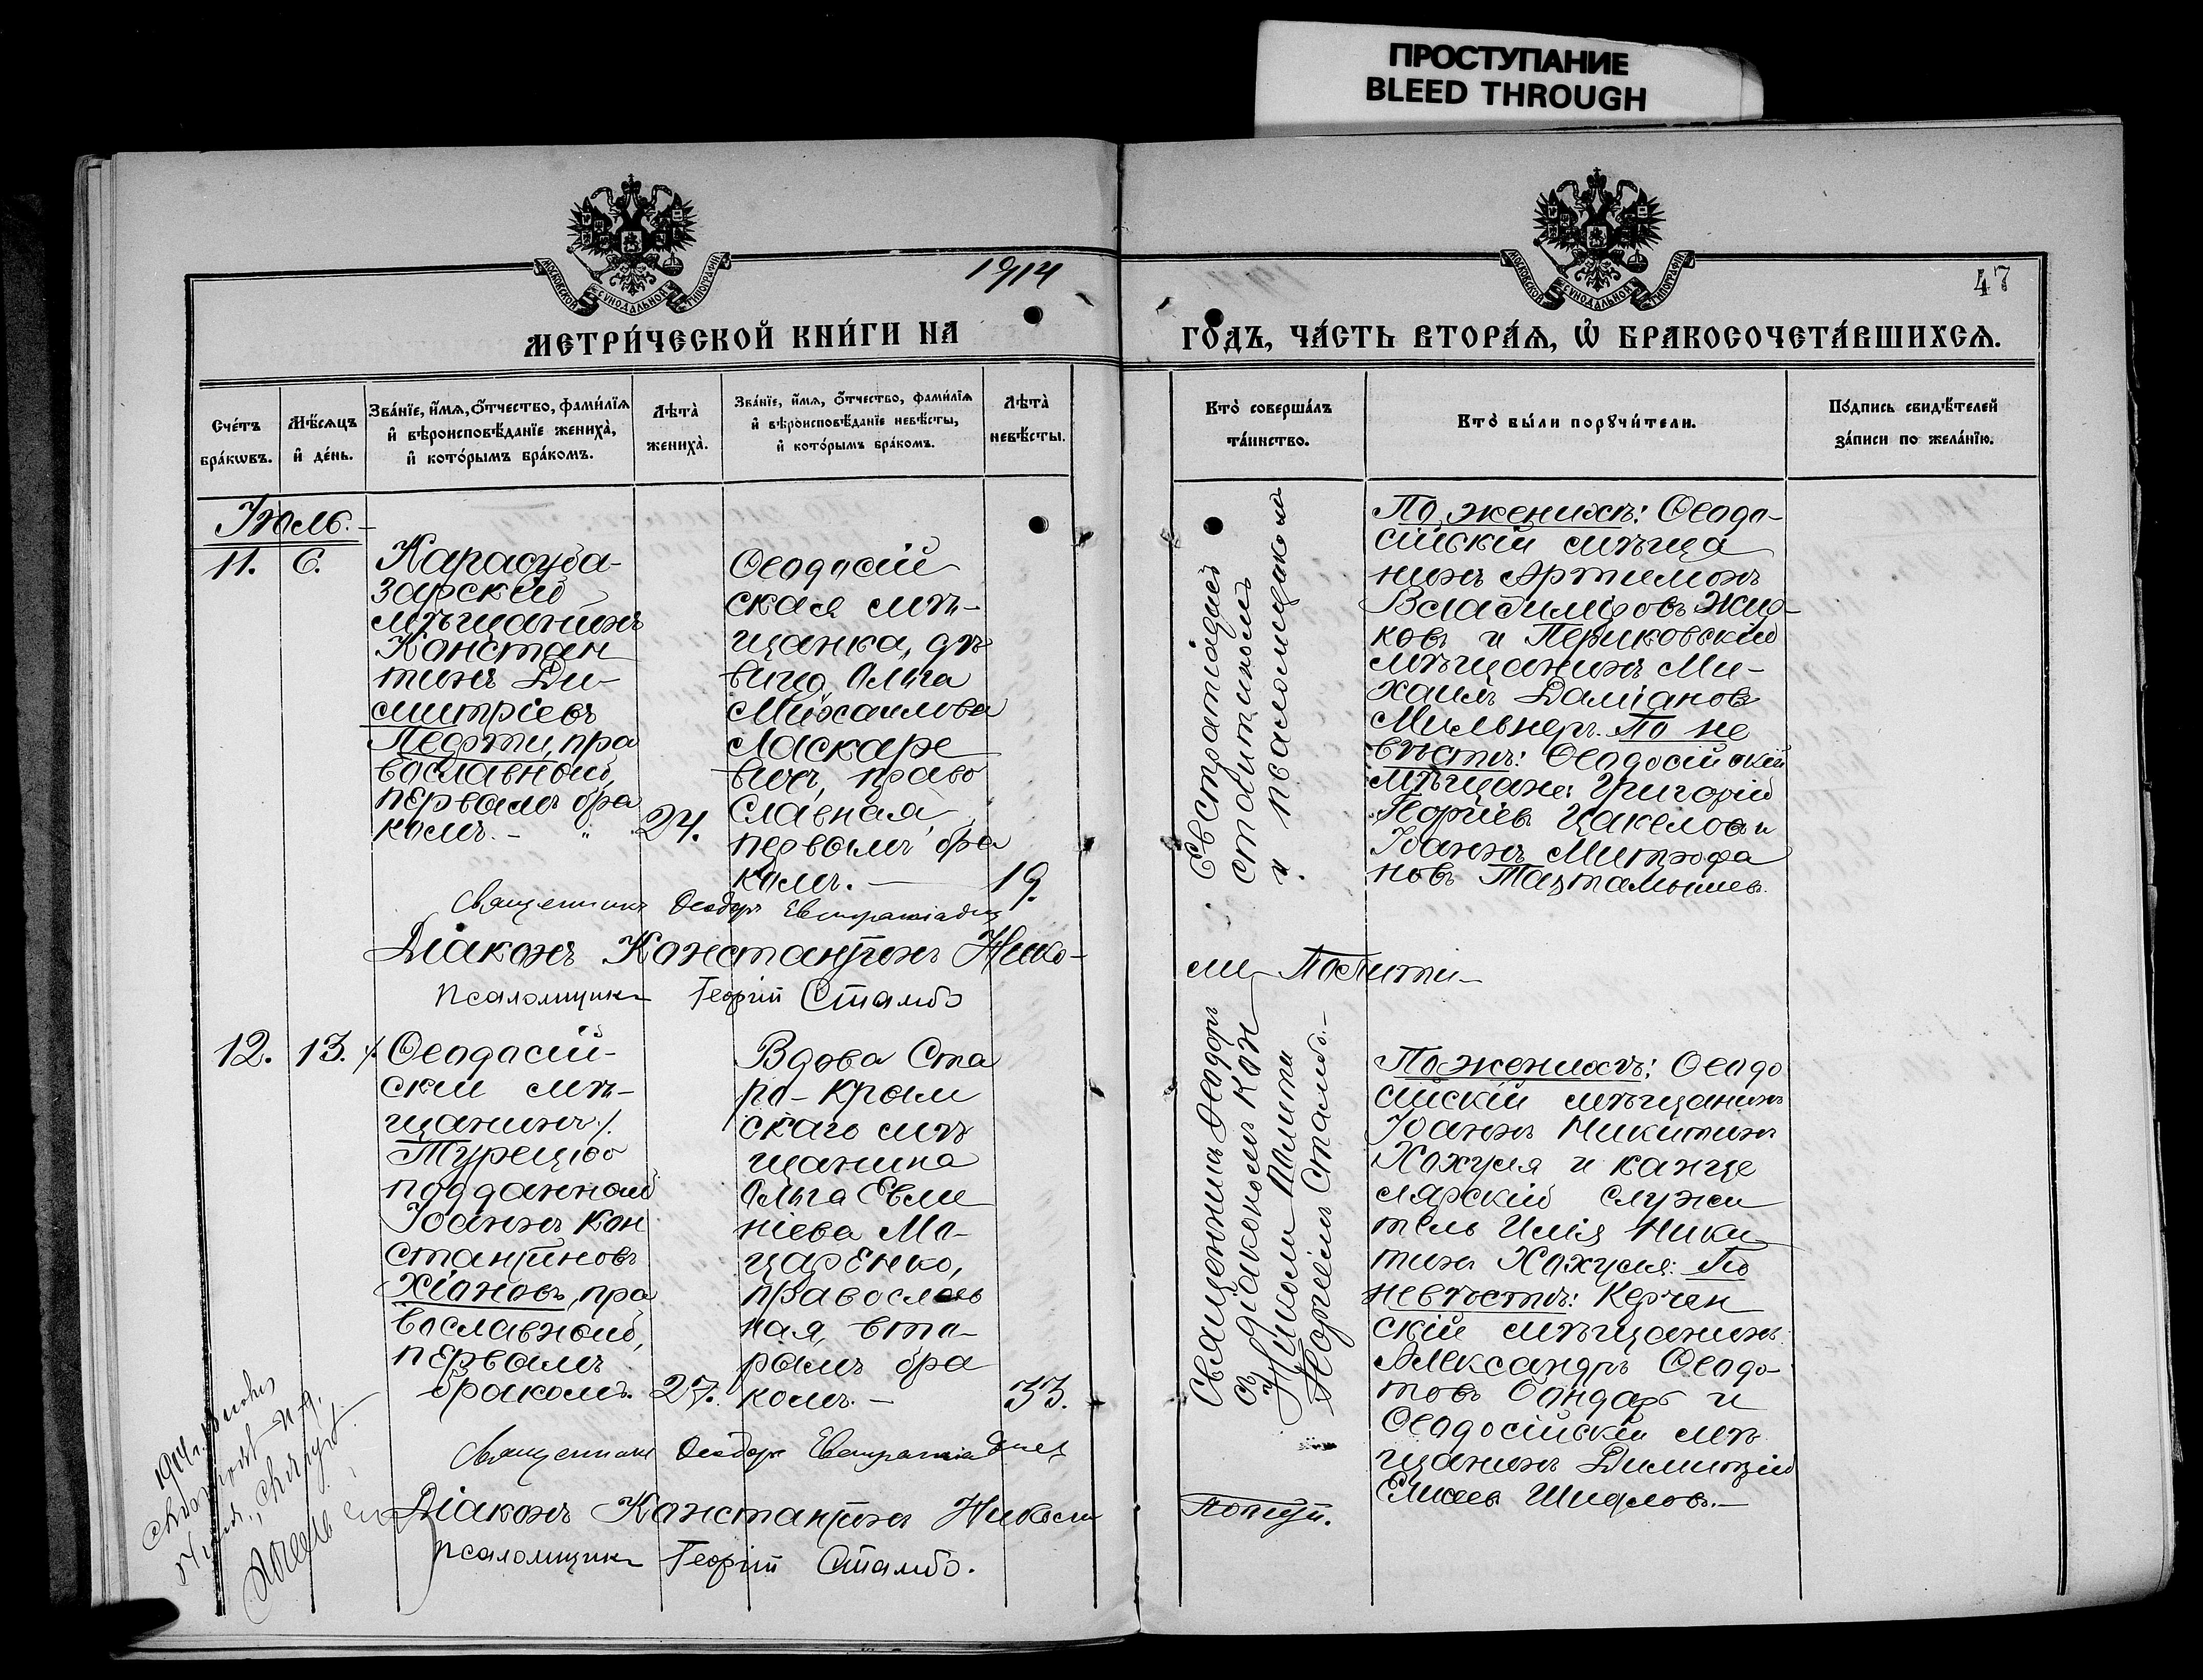 ПРОСТУПАНИЕ
BLEED THROUGH
МОСКОВСКОЙ СѴНОДАЛЬНОЙ ТИПОГРАФІИ
МОСКОВСКОЙ СѴНОДАЛЬНОЙ ТИПОГРАФІИ
1914
47
МЕТРИ́ЧЕСКОЙ КНИ́ГИ НА
ГО́ДЪ, ЧА́СТЬ ВТОРА́Ѧ, Ѡ҆ БРАКОСОЧЕТА́ВШИХСѦ.
Сче́тъ
бра́кѡвъ.
Мѣ́сѧцъ
и҆ де́нь.
Зва́нїе, и҆́мѧ, ѻ҆́тчество, фами́лїѧ
и҆ вѣроисповѣ́данїе жениха̀,
и҆ кото́рымъ бра́комъ.
Лѣта̀
жениха̀.
Зва́нїе, и҆́мѧ, ѻ҆́тчество, фами́лїѧ
и҆ вѣроисповѣ́данїе невѣ́сты,
и҆ кото́рымъ бра́комъ.
Лѣта̀
невѣ́сты.
Кто̀ соверша́лъ
та́инство.
Кто̀ бы́ли порꙋчи́тели.
По́дпись свидѣ́телей
за́писи по жела́нїю.
Іюль.-
11.
6.
Карасуба-
зарскій
мѣщанинъ
Констан
тинъ Ди-
митріевъ
Пефти, пра
вославный,
первымъ бра
комъ. - "
24.
Ѳеодосій-
ская мѣ-
щанка, дѣ
вица Ольга
Михаилова
Ласкаре
вичъ, право
славная,
первымъ бра
комъ. —
19.
Евстратіадисъ
и псаломщикомъ
По женихѣ: Ѳеодо-
сійскій мѣща
нинъ Артемонъ
Владиміровъ Жид-
ковъ и Перекопскій
мѣщанинъ Ми-
хаилъ Даміановъ
Мильнеръ. По не
вѣстѣ: Ѳеодосійскій
мѣщане: Григорій
Георгіевъ Цакеловъ и
Іоаннъ Митрофа
новъ
Священникъ Ѳеодоръ Евстратіадисъ
Діаконъ Константинъ Нико-
ли Полити-
псаломщикъ Георгій Стамбо
12.
13.
/. Ѳеодосій-
скій мѣ-
щанинъ /.
Турецко
подданный
Іоаннъ Кон
стантиновъ
Хіоновъ, пра
вославный,
первымъ
бракомъ.
27.
Вдова Ста
ро-Крым
скаго мѣ
щанина
Ольга Евме
ніева Мо-
царенко,
православ
ная, вто-
рымъ бра
комъ. —
33.
Священникъ Ѳеодоръ
съ діакономъ Кон
Николи Полити
Георгіемъ Стамбо.-
По женихѣ: Ѳеодо
сійскій мѣщанинъ
Іоаннъ Никитинъ
Хохуля и канце
лярскій служи
тель Илія Ники
тинъ Хохуля: По
невѣстѣ: Керчен
скій мѣщанинъ
Александръ Ѳеодо-
товъ Бондарь и
Ѳеодосійскій мѣ
щанинъ Димитрій
Елисеевъ Шидловъ.—
Священникъ Ѳеодоръ Евстратіадисъ
Діаконъ Константинъ Николи
Полити.
псаломщикъ Георгій Стамбо.